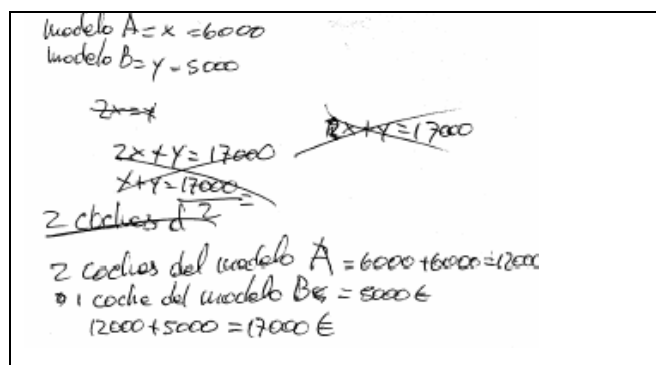 modelo A = x = 6000
modelo B = y = 5000
2x = y
2x + y = 17000
2x + y = 17000
x + y = 17000
2
=
2 coches d
2 coches del modelo A = 6000 + 6000 = 12000
1 coche del modelo B = 5000 €
12000 + 5000 = 17000 €